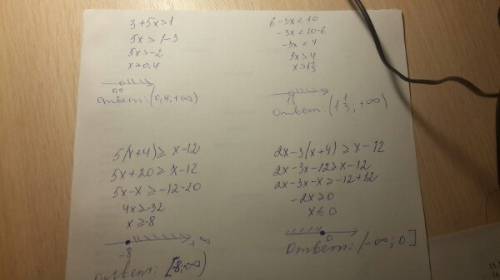 3+5x>1
5x>1-3
5x>-2
x>0,4
Ответ: (0,4; +∞)
6-3x<10
-3x<10-6
-3x<4
3x>4
Ответ: (1 1/3; +∞)
5(x+4)≥x-12
5x+20≥x-12
5x-x≥-12-20
4x≥-32
x≥-8
-8
Ответ: [-8;∞)
2x-3(x+4)≥x-12
2x-3x-12≥x-12
2x-3x-x≥-12+12
-2x≥0
x≤0
0
Ответ: (-∞; 0]